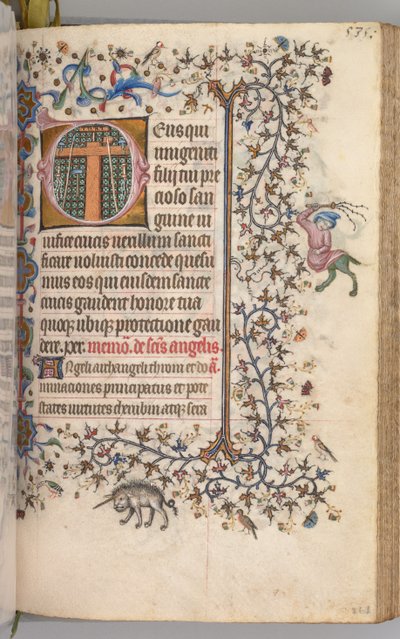 535.
Deus qui
unigeniti
filii tui pre
cioso san
guine ui
uifice crucis uexillum sancti
ficare uoluisti concede quesu
mus eos qui eiusdem sancte
crucis gaudent honore tua
quoqz ubique protectione gau
dere. per. memo. de scis angelis.
Angeli archangeli throni et do a.
minaciones principatus et pote
states uirtutes cherubim atqz sera